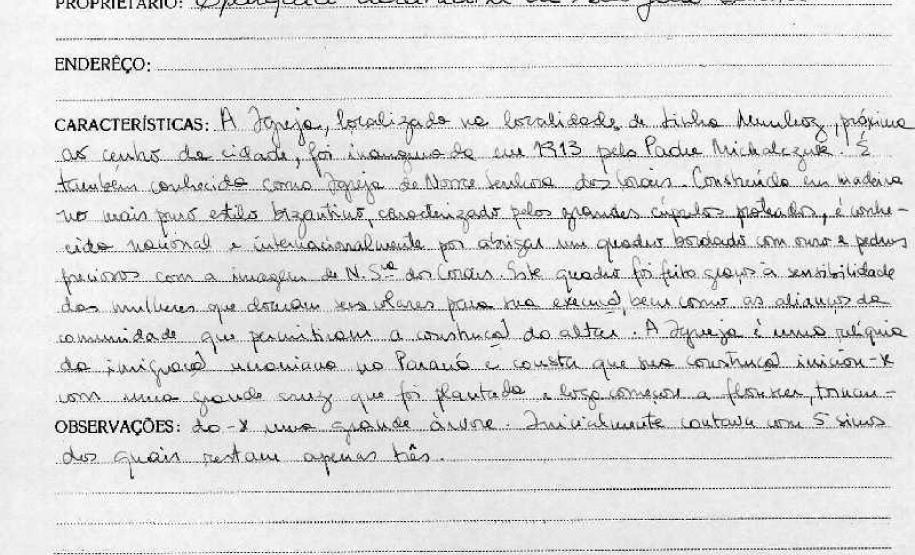 PROPRIETÁRIO: Eparquia Ucraniana de São João Batista
ENDERÊÇO:
CARACTERÍSTICAS: A Igreja, localizada na localidade de Linha Munhoz, próxima
ao centro da cidade, foi inaugurada em 1913 pelo Padre Michalczuk. É
também conhecida como Igreja de Nossa Senhora dos Corais. Construída em madeira
no mais puro estilo bizantino, caracterizado pelas grandes cúpulas prateadas, é conhe-
cida nacional e internacionalmente por abrigar um quadro bordado com ouro e pedras
preciosas com a imagem de N. Sra dos Corais. Este quadro foi feito graças à sensibilidade
das mulheres que doaram seus colares para sua execução, bem como as alianças da
comunidade que permitiram a construção do altar. A Igreja é uma relíquia
da imigração ucraniana no Paraná e consta que sua construção iniciou-se
com uma grande cruz que foi plantada e logo começou a florescer, tornan-
OBSERVAÇÕES: do-se uma grande árvore. Inicialmente contava com 5 sinos
dos quais restam apenas três.